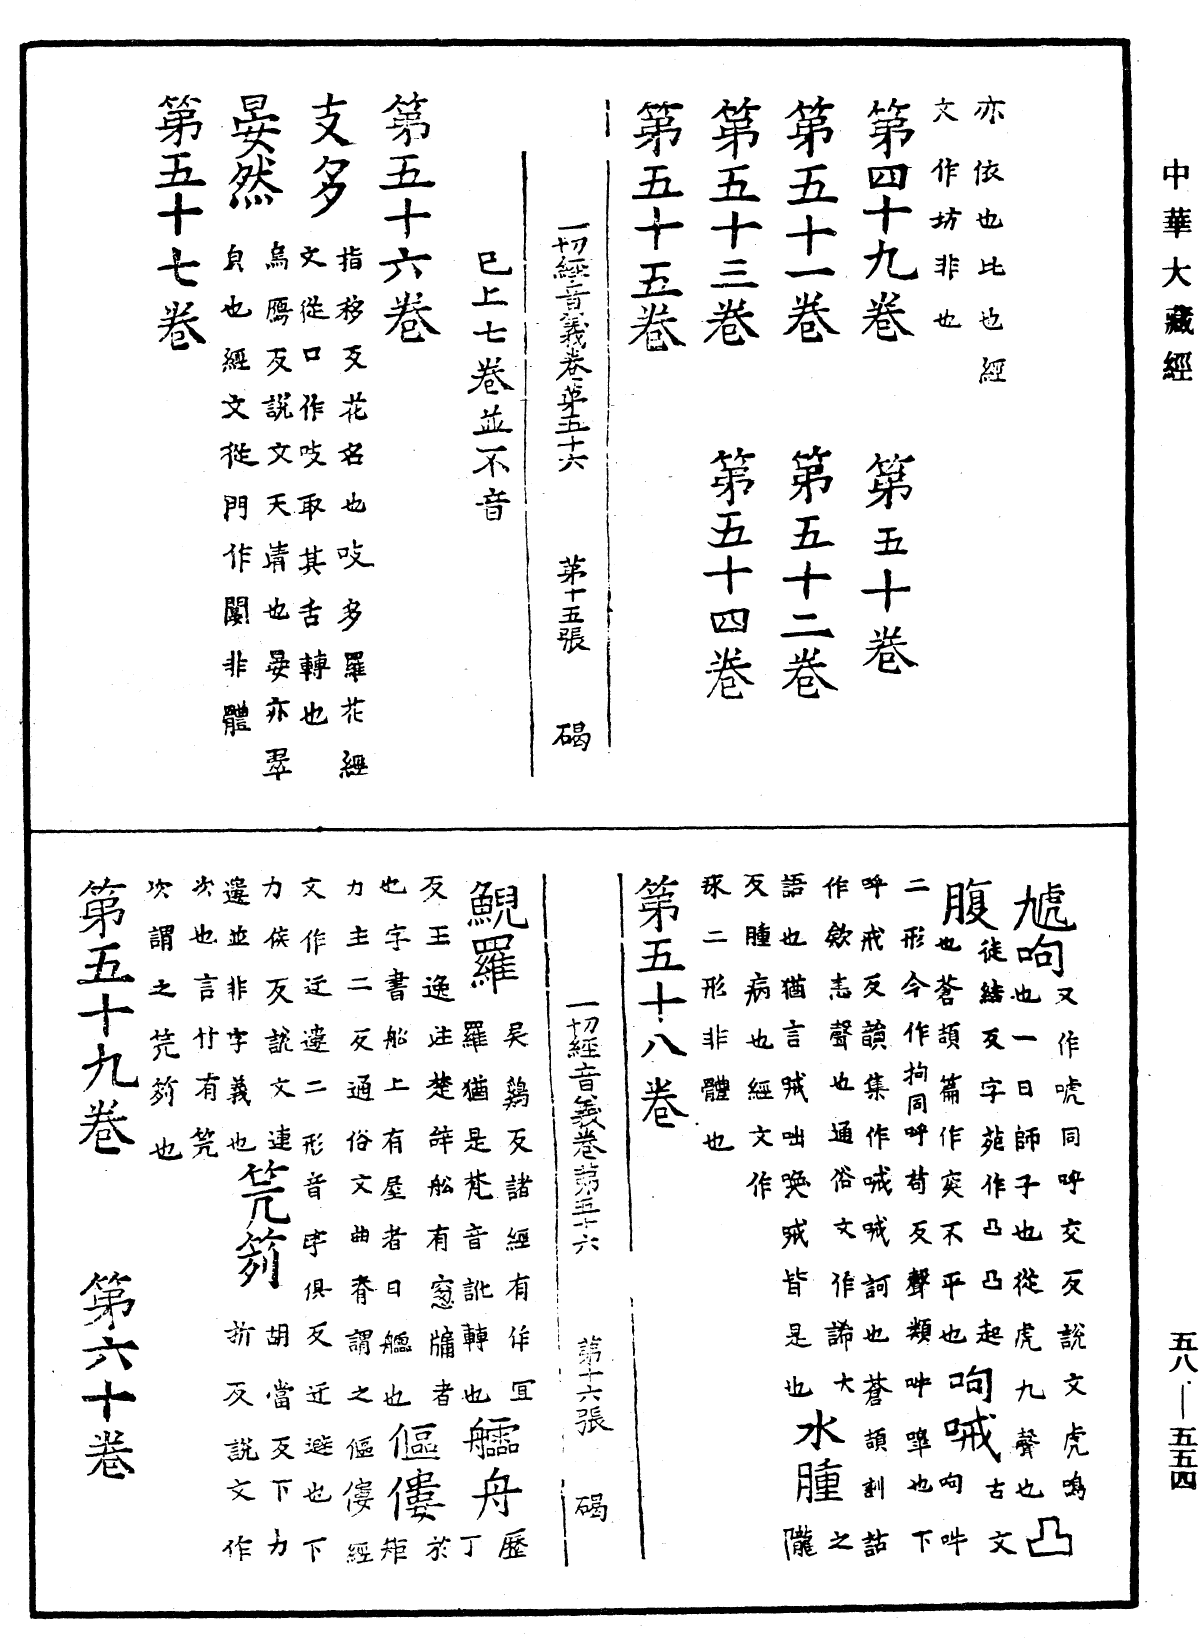 中華大藏經
亦依也比也經
文作坊非也
第四十九卷 第五十卷
第五十一卷 第五十二卷
第五十三卷 第五十四卷
第五十五卷
一切經音義卷第五十六 第十五張 碣
已上七卷並不音
第五十六卷
支多 指移反花名也吱多羅花經
文從口作吱取其舌轉也
晏然 烏鴈反說文天清也晏亦翠
皃也經文從門作闅非體
第五十七卷
虓呴 又作唬同呼交反說文虎鳴
也一曰師子也從虎九聲也 凸
腹 徒結反字苑作凸凸起 古文
也蒼頡篇作突不平也 呴㖑
二形今作拘同呼苟反聲類呻嘷也下
呼戒反韻集作㖑㖑訶也蒼頡訓詁
作欸恚聲也通俗文作諦大 之
語也猶言㖑咄喚㖑皆是也 水腫 隴
反腫病也經文作
㻎二形非體也
第五十八卷
一切經音義卷第五十六 第十六張 碣
鯢羅 吴鷄反諸經有作冝
羅猶是梵音訛轉也 艫舟 歷丁
反王逸注楚辞舩有窓牖者
也字書舩上有屋者曰艫也 傴僂 於矩
力主二反通俗文曲脊謂之傴僂經
文作迃邊二形音字俱反迃避也下
力侯反說文連
邊並非字義也 笐笏 胡當反下力
折反說文作
次也言竹有笐
次謂之笐笏也
第五十九卷 第六十卷
五八·一五五四